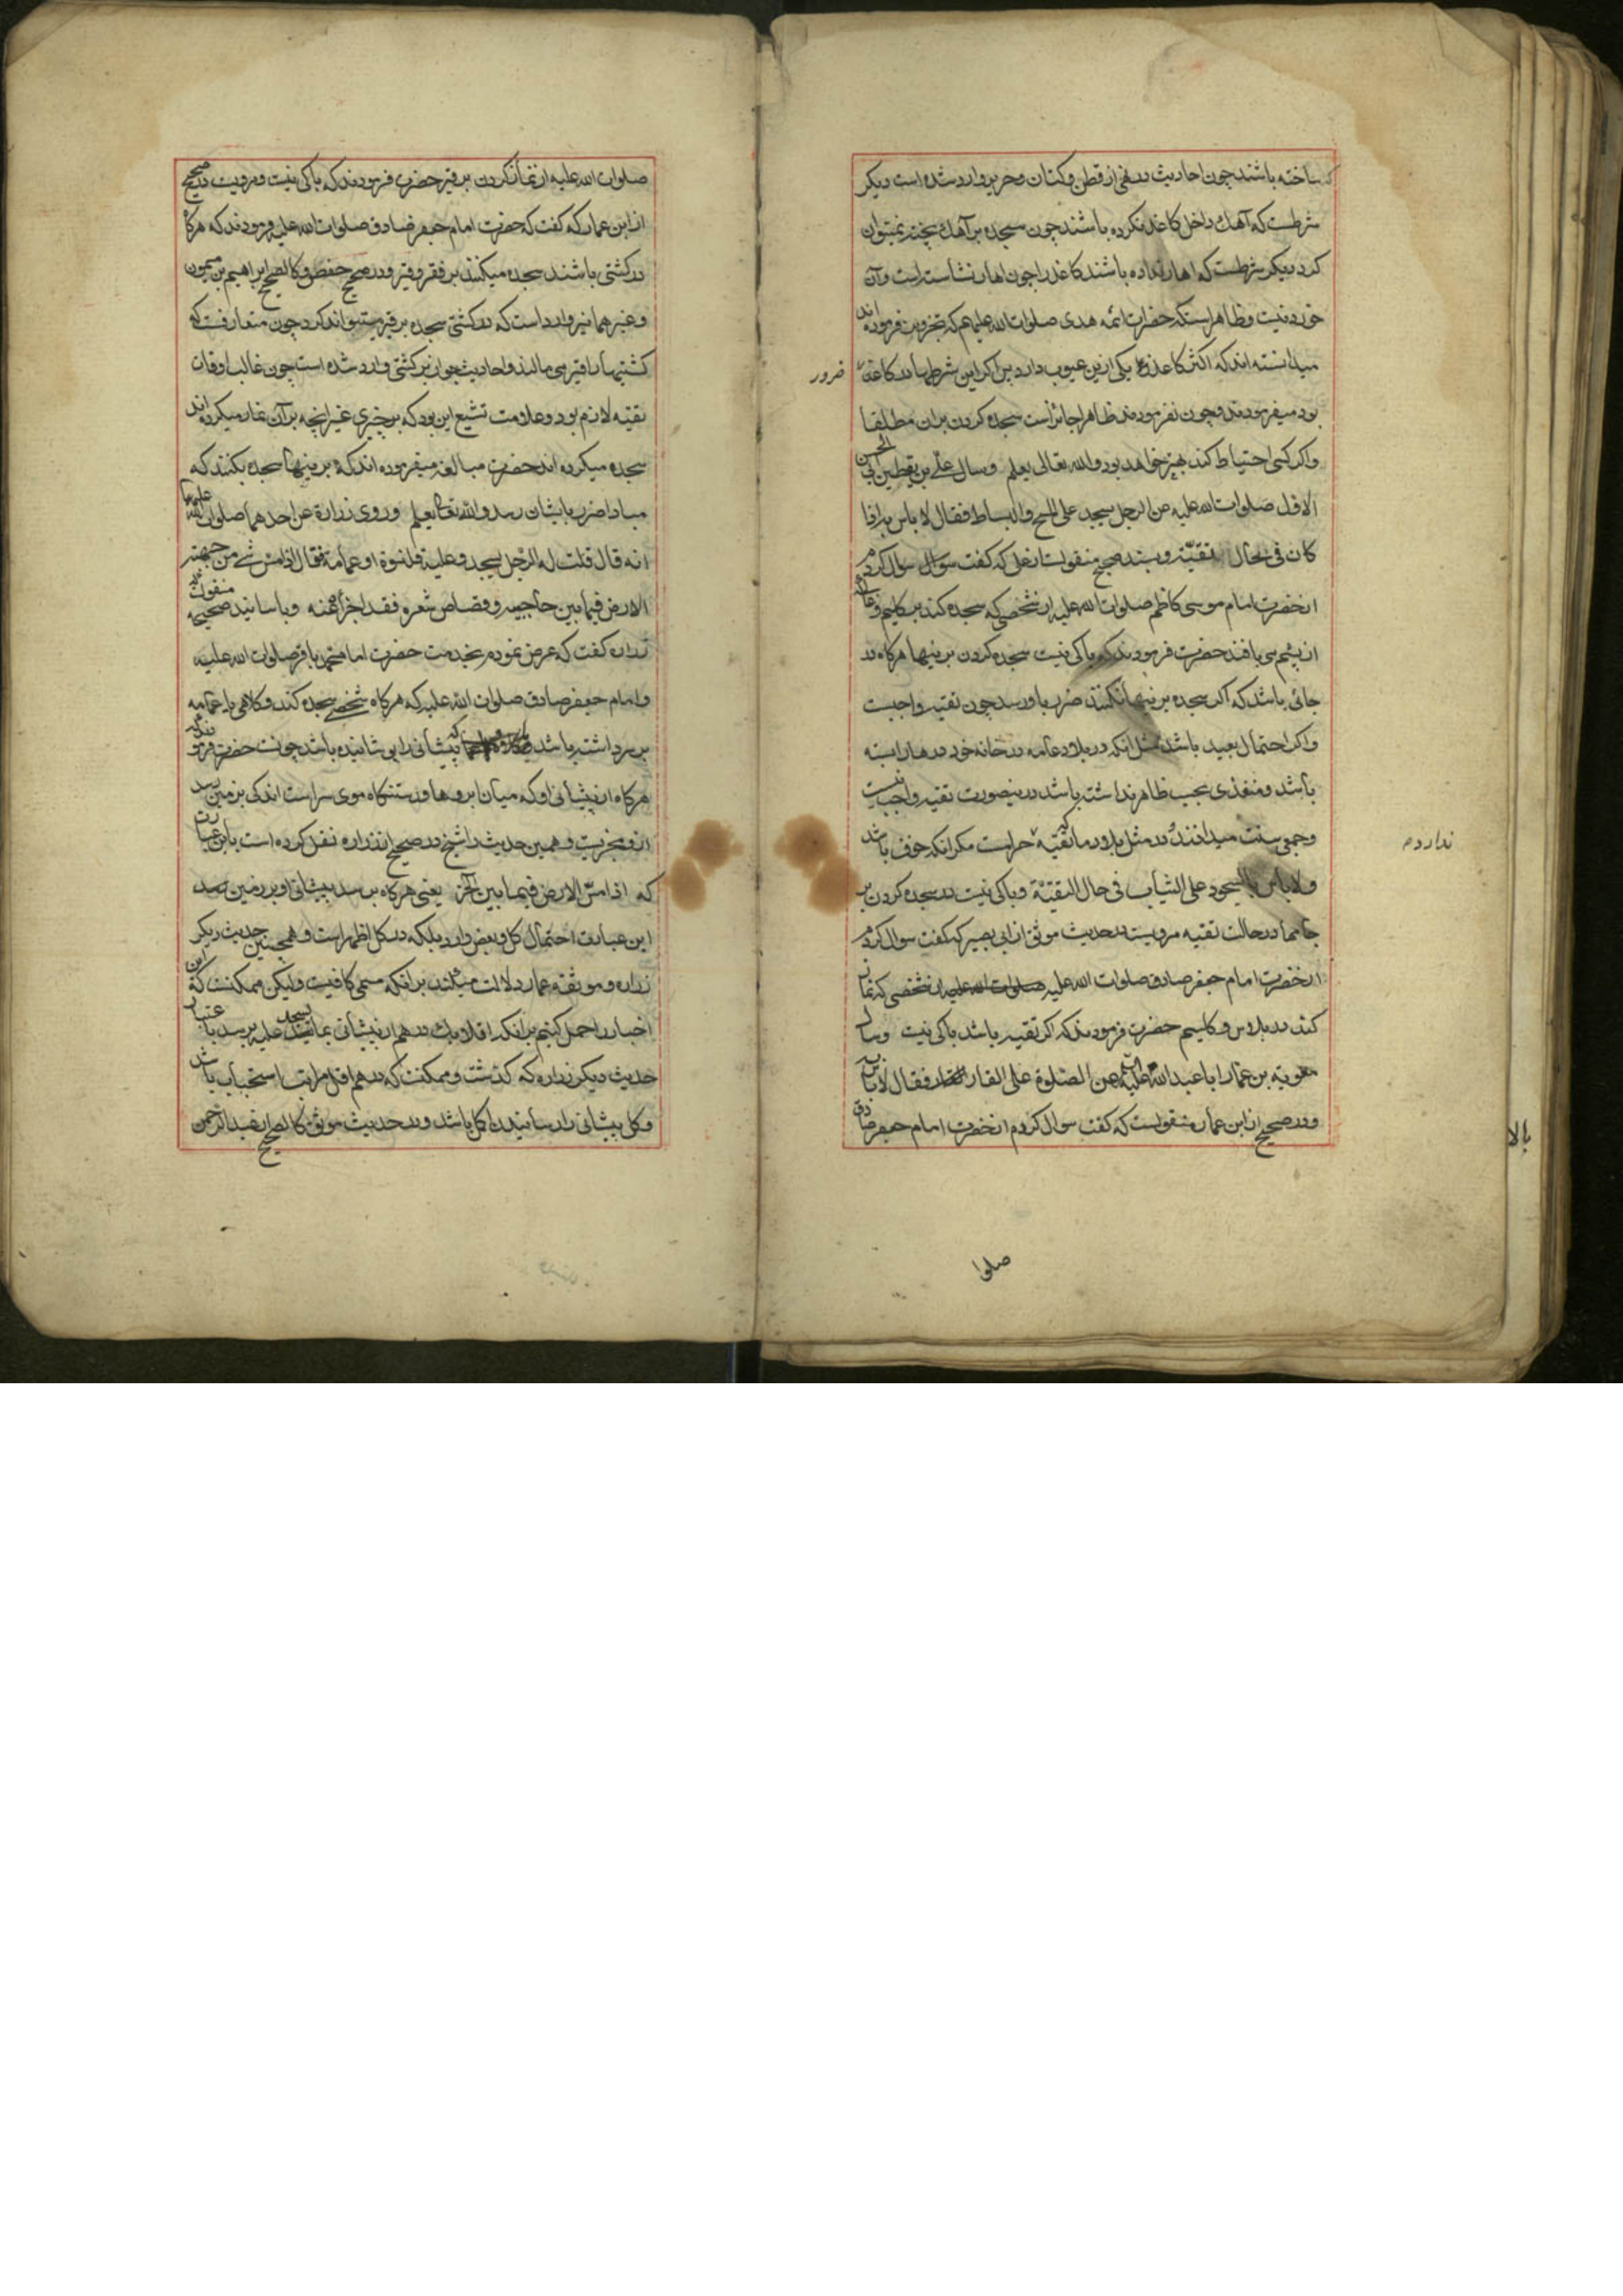 ساخته باشند چون احادیث در نفی از قطن و کتان و حریر وارد شده است دیگر
شرطست که آهک داخل کاغذ نکرده باشند چون سجده بر آهک پخته نمیتوان
کرد دیگر شرطست که اهار نداده باشند کاغذ را چون اهار نشاسته است و آن
خوردنیست و ظاهر اینستکه حضرات ائمه هدی صلوات الله علیهم که تجویز فرموده اند
میدانسته اند که اکثر کاغذها یکی ازین عیوب دارد پس اکر این شرطها در کاغذ
ضرور
بود میفرمودند و چون نفرمودند ظاهرا جائز است سجده کردن بران مطلقا
واکر کسی احتیاط کند بهتر خواهد بود والله تعالی یعلم وسال علی بن یقطین ابا الحسن
الاول صلوات الله علیه عن الرجل یسجد علی المسح والبساط فقال لا باس به اذا
کان فی حال تقیّة و بسند صحیح منقولست از علی که کفت سوال کردم
از حضرت امام موسی کاظم صلوات الله علیه از شخصی که سجده کند بر کلیم و
از پشم می بافند حضرت فرمودند که باکی نیست سجده کردن بر اینها هرکاه در
جائی باشد که اکر سجده بر اینها نکند ضرر باو رسد چون تقیه واجبست
واکر احتمال بعید باشد مثل انکه در بلاد عامه در خانه خود در هارا بسته
باشد و منفذی بحسب ظاهر نداشته باشد درینصورت تقیه واجب نیست
وجمعی سنت میدانند و در مثل بلاد ما که تقیّه حرامست مکر انکه خوف باشد
ندارد م
ولا باس بالسجود علی الثیاب فی حال التقیّة وباکی نیست در سجده کردن بر
جامها در حالت تقیه مرویست در حدیث موثق از ابی بصیر که کفت سوال کردم
از حضرت امام جعفر صادق صلوات الله علیه از شخصی که نماز
کند در پلاس و کلیم حضرت فرمودند که اکر تقیه باشد باکی نیست وسال
معویة بن عمار ابا عبد الله علیه عن الصلوة علی القار فقال لا باس به
ودر صحیح از ابن عمار منقولست که کفت سوال کردم از حضرت امام جعفر صادق
بالا
صلوا
صلوات الله علیه از نماز کردن بر قیر حضرت فرمودند که باکی نیست و مرویست در صحیح
از ابن عمار که کفت که حضرت امام جعفر صادق صلوات الله علیه فرمودند که هرکاه
در کشتی باشند سجده میکنند بر قفر و قیر ودر صحیح و کالصحیح ابراهیم بن میمون
وغیر هما نیز وارد است که در کشتی سجده بر قیر میتواند کرد چون متعارفست که
کشتیها را قیر می مالند و احادیث جواز نیز کشتی وارد شده است چون غالب اوقات
تقیّه لازم بود و علامت تشیع این بود که بر چیزی غیر انچه بر آن نماز میکرده اند
سجده میکرده اند حضرت مبالغه میفرموده اند که بر اینها سجده بکنند که
مبادا ضرر بایشان رسد والله تعالی یعلم وروی زرارة عن احدهما صلوات الله علیهما
انه قال قلت له الرّجل یسجد وعلیه قلنسوة او عمامة فقال اذا مسّ شئ من جبهته
الارض فیما بین حاجبیه وقصاص شعره فقد اجزأ عنه وباسانید صحیحه منقولست
زراره کفت که عرض نمودم بخدمت حضرت امام محمد باقر صلوات الله علیه
وامام جعفر صادق صلوات الله علیه که هرکاه شخصی سجده کند و کلاهی یا عمامه
بر سر داشته باشد که پیشانی را پوشانیده باشد چونست حضرت فرمودند که
هرکاه از پیشانی او که میان ابروها ورستنکاه موی سر است اندکی بزمین رسد
ازو مجزیست و همین حدیث را شیخ در صحیح از زراره نقل کرده است باین عبارت
که اذا مسّ الارض فیما بین آخر یعنی هرکاه برسد پیشانی او بر زمین
این عبارت احتمال کل و بعض دارد بلکه در کل اظهر است و همچنین حدیث دیکر
زراره و موثقه عمار دلالت میکند بر انکه مسمی کافیست ولیکن ممکنست که این
اخبار را حمل کنیم بر انکه اقلا بقدر درهم از پیشانی بما یسجد علیه برسد باعتبار
حدیث دیکر زراره که کذشت و ممکنست که درهم اقل مراتب استحباب باشد
و کل پیشانی را رسانیدن اکمل باشد ودر حدیث موثق کالصحیح از عبد الرحمن